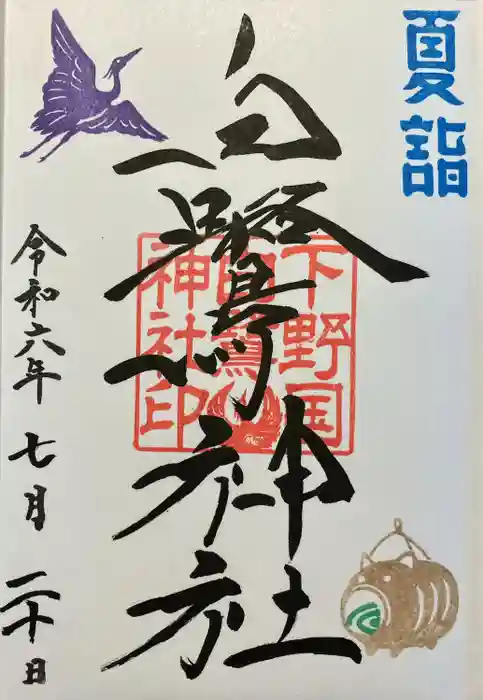 夏詣
白鷺神社
下野国
白鷺
神社印
令和六年七月二十日